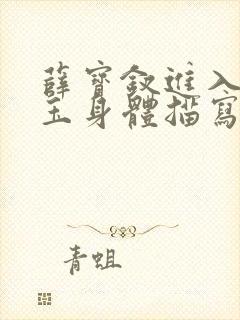 薛寶釵進入
玉身體描寫
青蛆